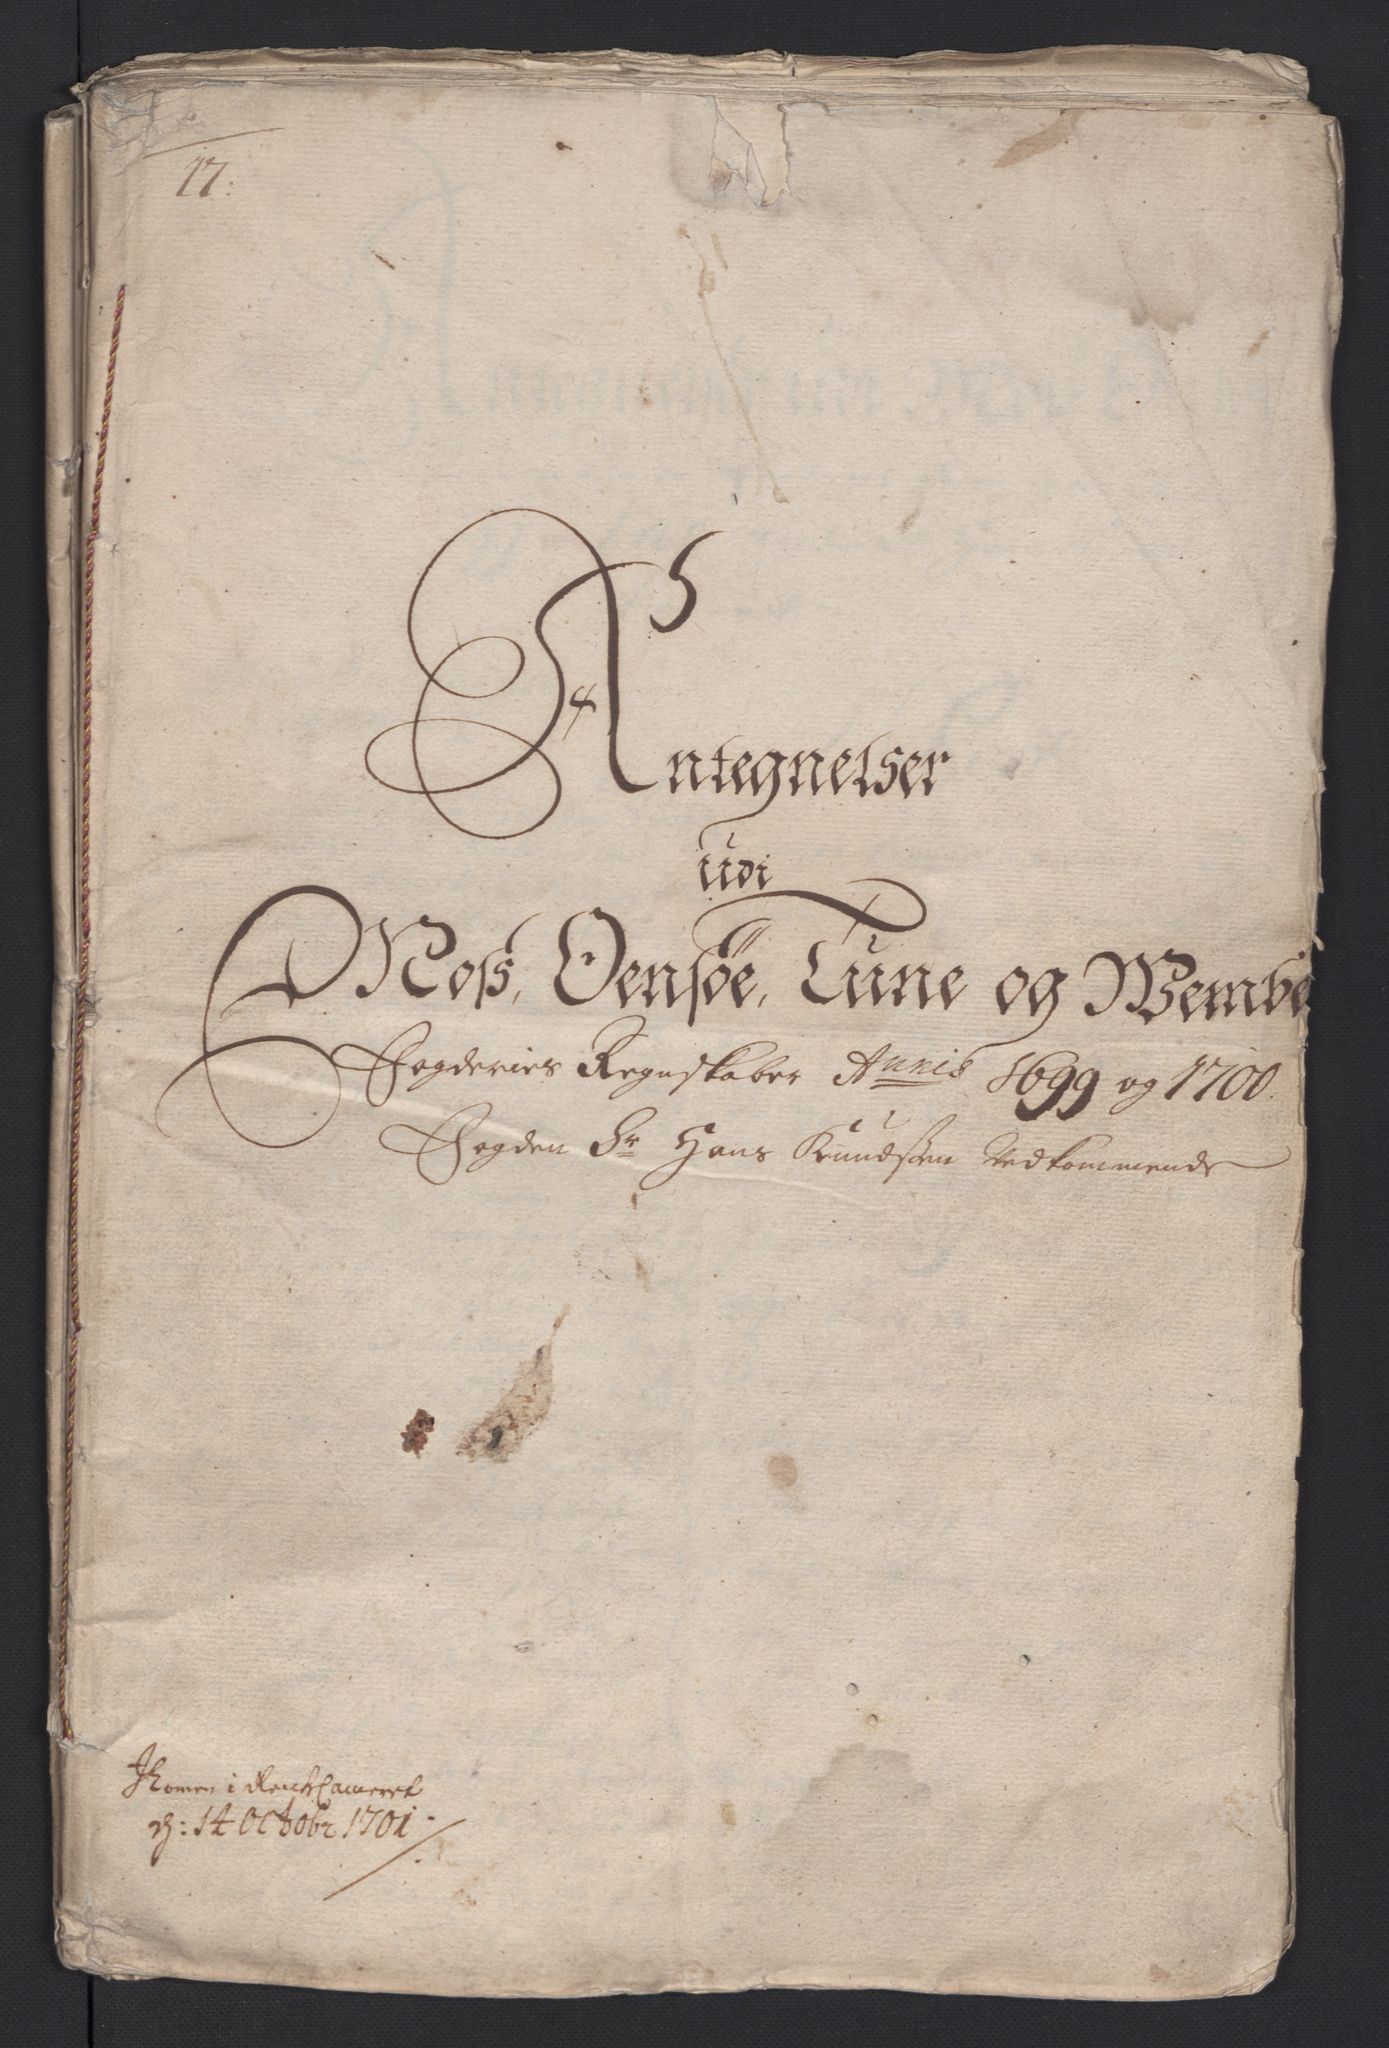 17:
Antegnelser
udi
Moss, Oensøe, Tune og Wembe
Fogderies Regnskaber Annis 1699 og 1700.
Fogden Sr Hans Knudssen Vedkommende
Jkomen i RentCameret
d: 14 Octobr 1701.